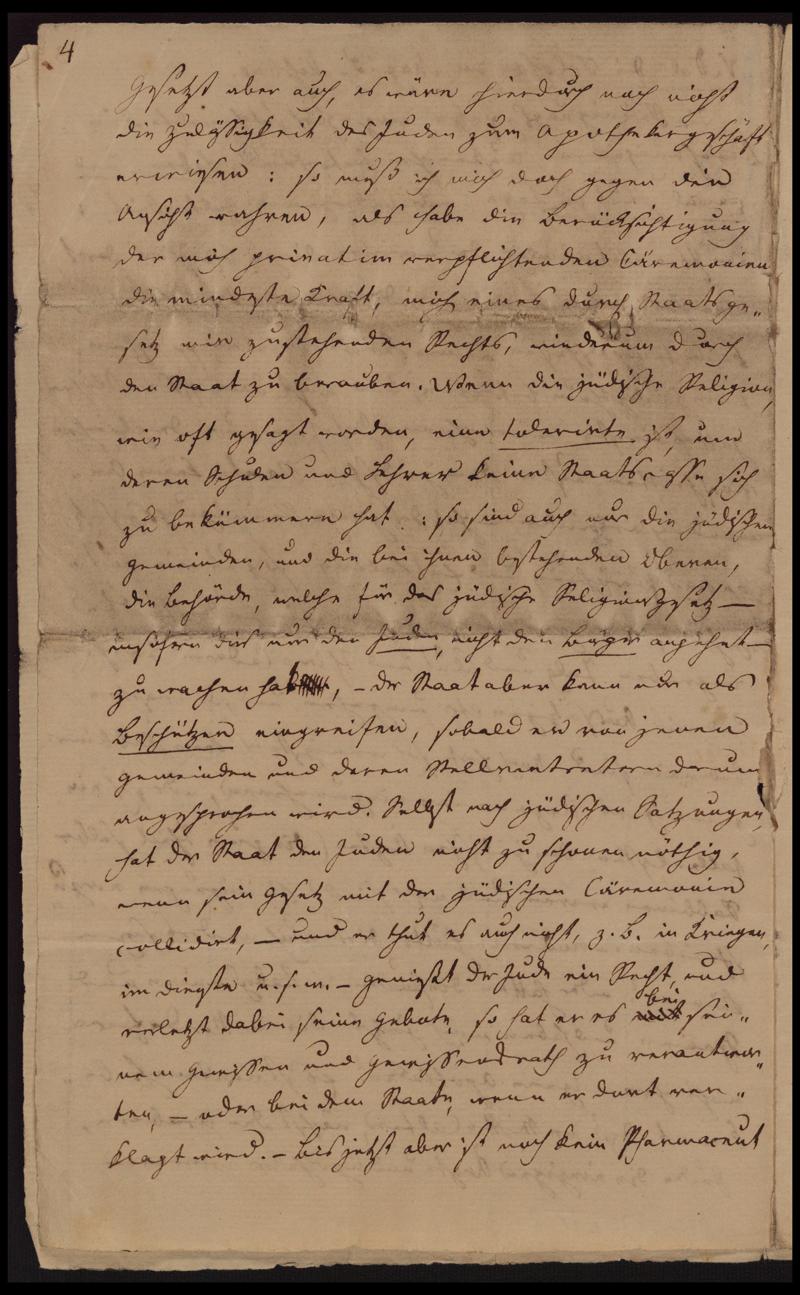 4
Gesetzt aber auch, es wäre hierdurch noch nicht
die Zulässigkeit des Juden zum Apothekergeschäft
erwiesen: so muß ich mich doch gegen die
Ansicht wahren, als habe die Berücksichtigung
der mich privatim verpflichtenden Cäremonien
die mindeste Kraft, mich eines durch Staatsge„
setz mir zustehenden Rechts, wiederum durch
den Staat zu berauben. Wenn die jüdische Religion,
wie oft gesagt worden, eine tolerirte ist, um
deren Schulen und Lehrer keine Staatscasse sich
zu bekümmern hat: so sind auch nur die jüdischen
Gemeinden, und die bei ihnen bestehenden Oberen,
die Behörde, welche für das jüdische Religionsgesetz —
insofern dies nur den Juden, nicht den Bürger angehet —
zu wachen hat, – der Staat aber kann nur als
Beschützer eingreifen, sobald er von jenen
Gemeinden und deren Stellvertretern darum
angesprochen wird. Selbst nach jüdischen Satzungen,
hat der Staat den Juden nicht zu schonen nöthig,
wenn sein Gesetz mit der jüdischen Cäremonie
collidirt, — und er thut es auch nicht, z. B. in Kriegen,
im Dienste u. s. w. – Genießt der Jude ein Recht, und
verletzt dabei seine Gebote, so hat er es bei sei„
nem Gewissen und Gewissensrath zu verantwor„
ten, – oder bei dem Staate, wenn er dort ver„
klagt wird. – Bis jetzt aber ist noch kein Pharmaceut